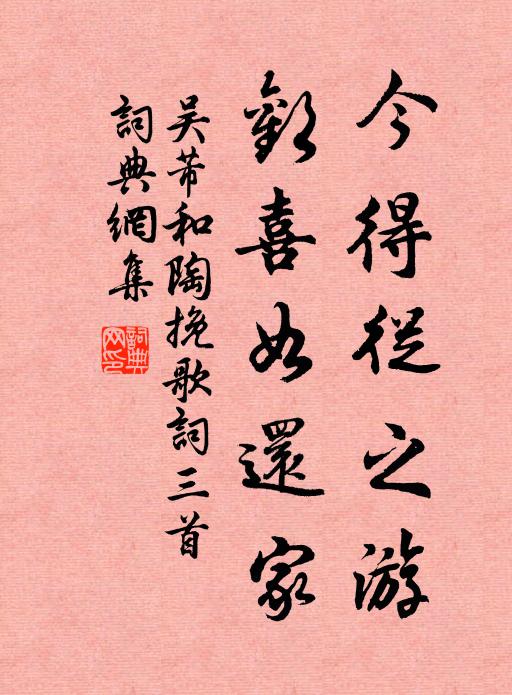 今得從之游
歡喜如還家
吴芾和陶挽歌詞三首
詞典網集
詞典网印